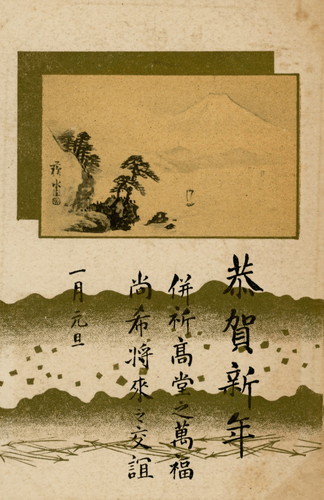 恭賀新年
併祈髙堂之萬福
尚希將來之交誼
一月元旦